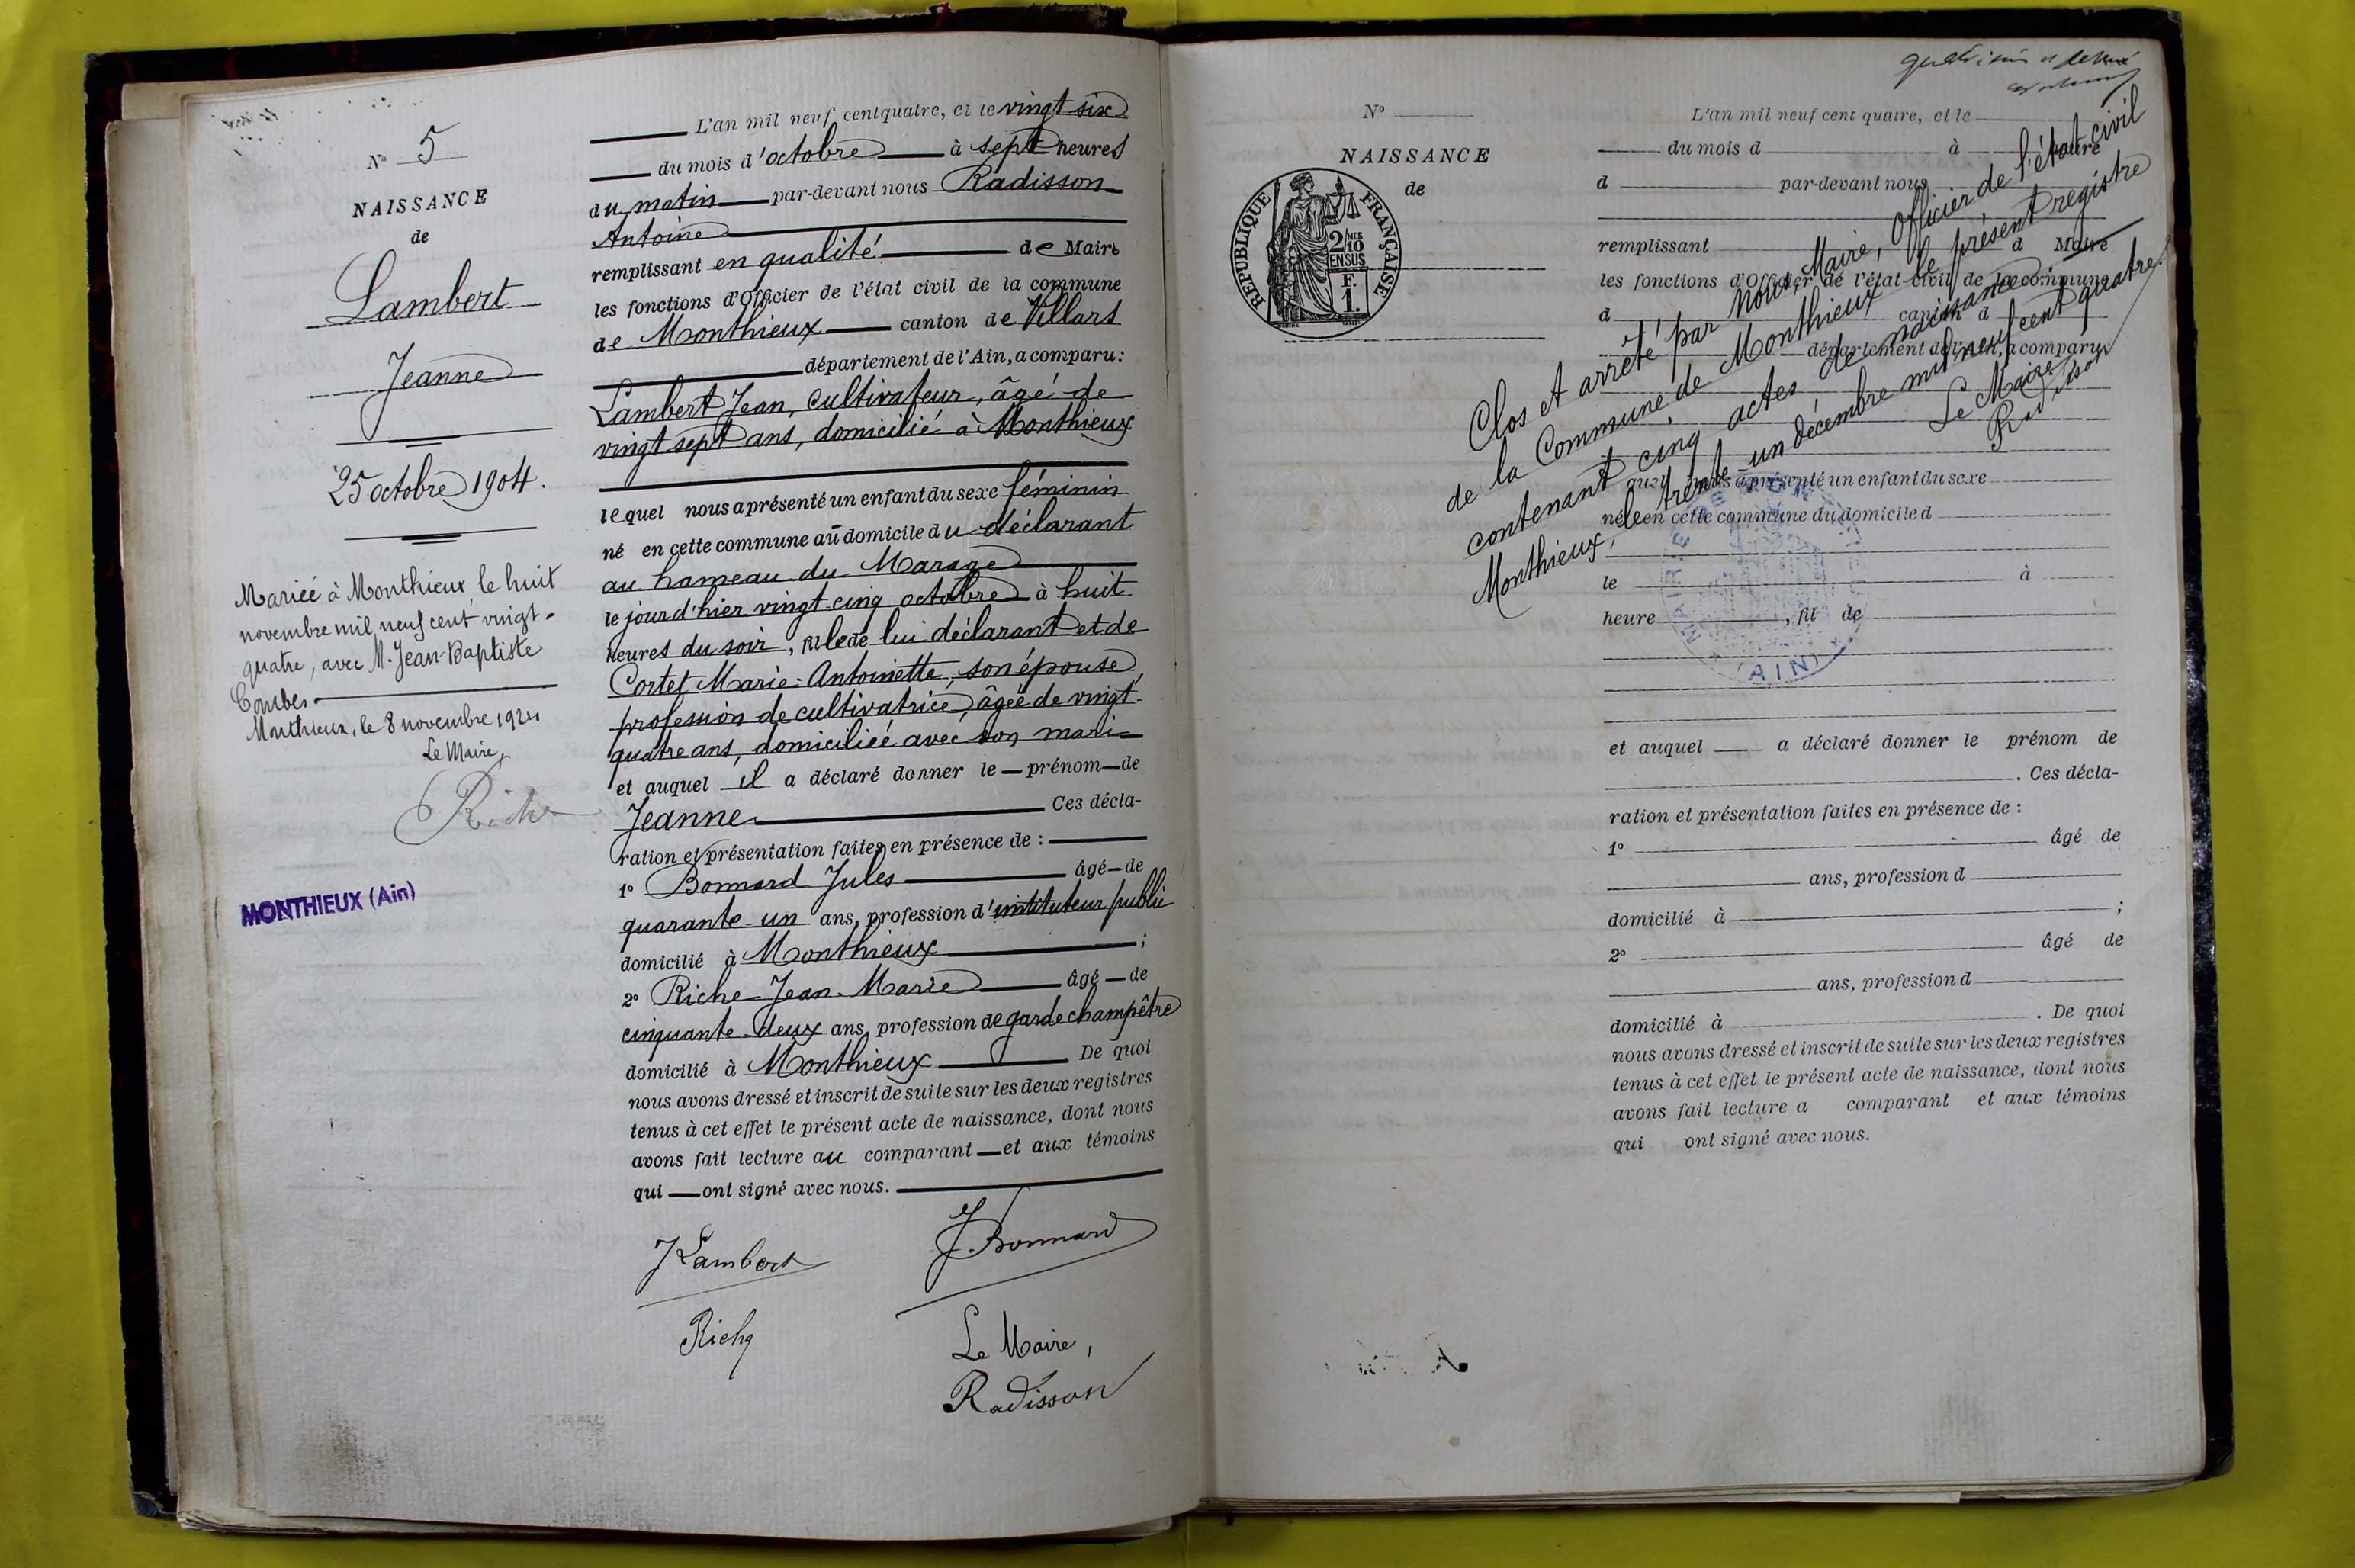 N° 5
NAISSANCE
de
Lambert
Jeanne
25 octobre 1904.
Mariée à Monthieux, le huit
novembre mil neuf cent vingt-
quatre, avec M. Jean-Baptiste
Combe
Monthieux, le 8 novembre 1924
Le Maire,
Riche
MONTHIEUX (Ain)
L'an mil neuf cent quatre, et le vingt six
du mois d'octobre à sept heures
du matin par-devant nous Radisson
Antoine
remplissant en qualité de Maire
les fonctions d'Officier de l'état civil de la commune
de Monthieux canton de Villars
département de l'Ain, a comparu :
Lambert Jean, cultivateur, âgé de
vingt sept ans, domicilié à Monthieux
lequel nous a présenté un enfant du sexe féminin
né en cette commune au domicile du déclarant
au hameau du Marage
le jour d'hier vingt-cinq octobre à huit
heures du soir, fille de lui déclarant et de
Cortet Marie-Antoinette, son épouse,
profession de cultivatrice, âgée de vingt-
quatre ans, domiciliée avec son mari
et auquel il a déclaré donner le prénom de
Jeanne Ces décla-
ration et présentation faites en présence de :
1° Bonnard Jules âgé de
quarante-un ans, profession d'instituteur public
domicilié à Monthieux ;
2° Riche Jean-Marie âgé de
cinquante-deux ans, profession de garde champêtre
domicilié à Monthieux De quoi
nous avons dressé et inscrit de suite sur les deux registres
tenus à cet effet le présent acte de naissance, dont nous
avons fait lecture au comparant et aux témoins
qui ont signé avec nous.
J Lambert J. Bonnard
Riche
Le Maire,
Radisson
N°
NAISSANCE
de
REPUBLIQUE FRANÇAISE
2/10 MES
EN SUS
F.
1
L'an mil neuf cent quatre, et le
du mois d à heure
d par-devant nous
remplissant d Maire
les fonctions d'Officier de l'état civil de la commune
d canton d
département de l'Ain, a comparu
Clos et arrêté par nous Maire, Officier de l'état civil
de la Commune de Monthieux le présent registre
contenant cinq actes de naissance.
Monthieux, le trente-un décembre mil neuf cent quatre.
Le Maire
Radisson
quel nous a présenté un enfant du sexe
né en cette commune au domicile d
MAIRIE DE MONTHIEUX
(AIN)
le à
heure , fil de
et auquel a déclaré donner le prénom de
. Ces décla-
ration et présentation faites en présence de :
1° âgé de
ans, profession d
domicilié à ;
2° âgé de
ans, profession d
domicilié à . De quoi
nous avons dressé et inscrit de suite sur les deux registres
tenus à cet effet le présent acte de naissance, dont nous
avons fait lecture a comparant et aux témoins
qui ont signé avec nous.